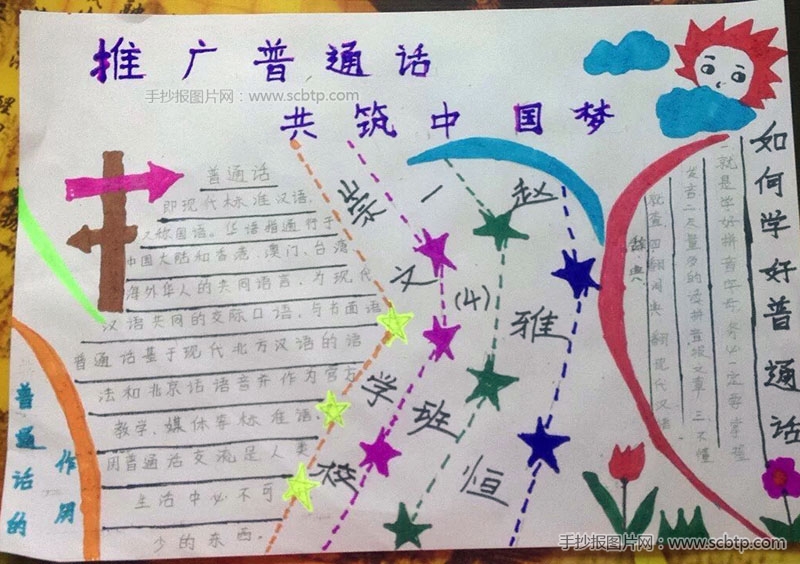 推广普通话
手抄报图片网：www.scbtp.com
共筑中国梦
普通话
即现代标准汉语，
又称国语。华语指通行于
中国大陆和香港、澳门、台湾
海外华人的共同语言，为现代
汉语共同的交际口语，与书面语
普通话基于现代北方汉语的语
法和北京话语音并作为官方
教学、媒体等标准语
用普通话交流是人类
生活中必不可
少的东西。
普通话的
作用
崇汉学校
一(4)班
赵雅恒
如何学好普通话
一就是学好拼音字母，务必一定要掌握
发言二尽量多的读拼音报文章三不懂
就查，四翻词典 翻现代汉语
辞典
手抄报图片网：www.scbtp.com